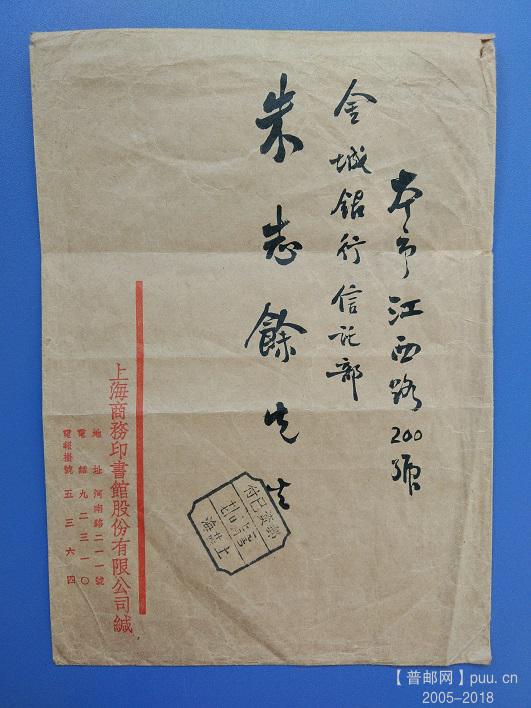 本市江西路200號
金城銀行信託部
朱志餘先生
上海商務印書館股份有限公司緘
地址河南路二一一號
電話九二三一〇
電報掛號五三六四
郵資已付
上海
【普邮网】puu.cn
2005-2018